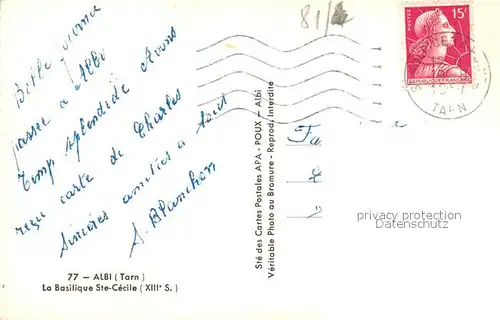 81/
Belle journée
passée à Albi
Temp splendide Avons
reçu carte de Charles
Sincères amitiés à tout
S. Blanchon
77 — ALBI (Tarn)
La Basilique Ste-Cécile (XIIIᵉ S.)
Sté des Cartes Postales APA - POUX - Albi
Véritable Photo au Bromure - Reprod. Interdite
POSTES
15F
REPUBLIQUE FRANÇAISE
TARN
privacy protection
Datenschutz